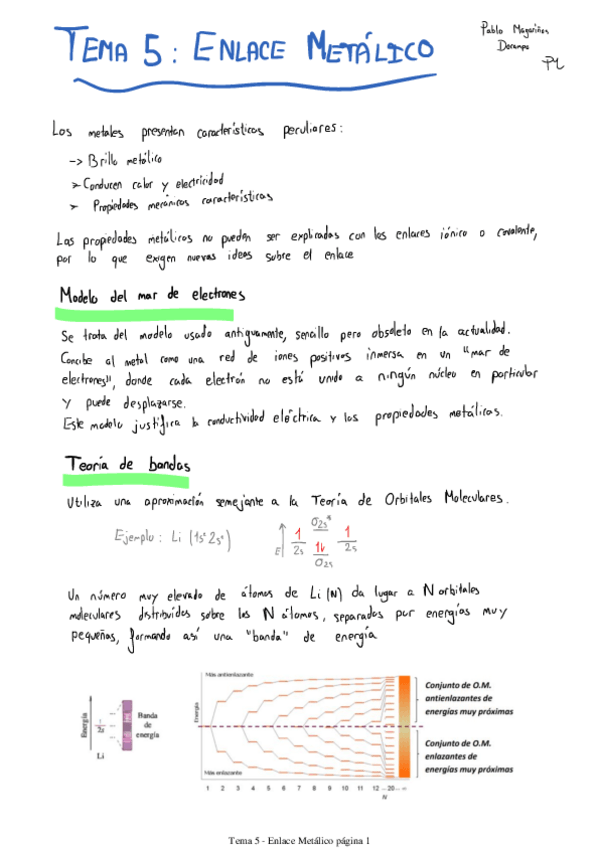 TEMA 5: ENLACE METÁLICO
Pablo Magariños
PM
Los metales presentan características peculiares:
-> Brillo metálico
> Conducen calor y electricidad
> Propiedades mecánicas características
Las propiedades metálicas no pueden ser explicadas con los enlaces iónico o covalente,
por lo que exigen nuevas ideas sobre el enlace
Modelo del mar de electrones
Se trata del modelo usado antiguamente, sencillo pero obsoleto en la actualidad.
Concibe al metal como una red de iones positivos inmersa en un "mar de
electrones", donde cada electrón no está unido a ningún núcleo en particular
y puede desplazarse.
Este modelo justifica la conductividad eléctrica y las propiedades metálicas.
Teoría de bandas
Utiliza una aproximación semejante a la Teoría de Orbitales Moleculares.
Ejemplo: Li (1s² 2s¹)
σ2s*
1 1
E 2s 1l 2s
σ2s
Un número muy elevado de átomos de Li (N) da lugar a N orbitales
moleculares distribuidos sobre los N átomos, separados por energías muy
pequeñas, formando así una "banda" de energía
Energía
2s
Li
Banda
de
energía
Más antienlazante
Energía
Más enlazante
1 2 3 4 5 6 7 8 9 10 11 12 ...20... ∞
N
Conjunto de O.M.
antienlazantes de
energías muy próximas
Conjunto de O.M.
enlazantes de
energías muy próximas
Tema 5 - Enlace Metálico página 1